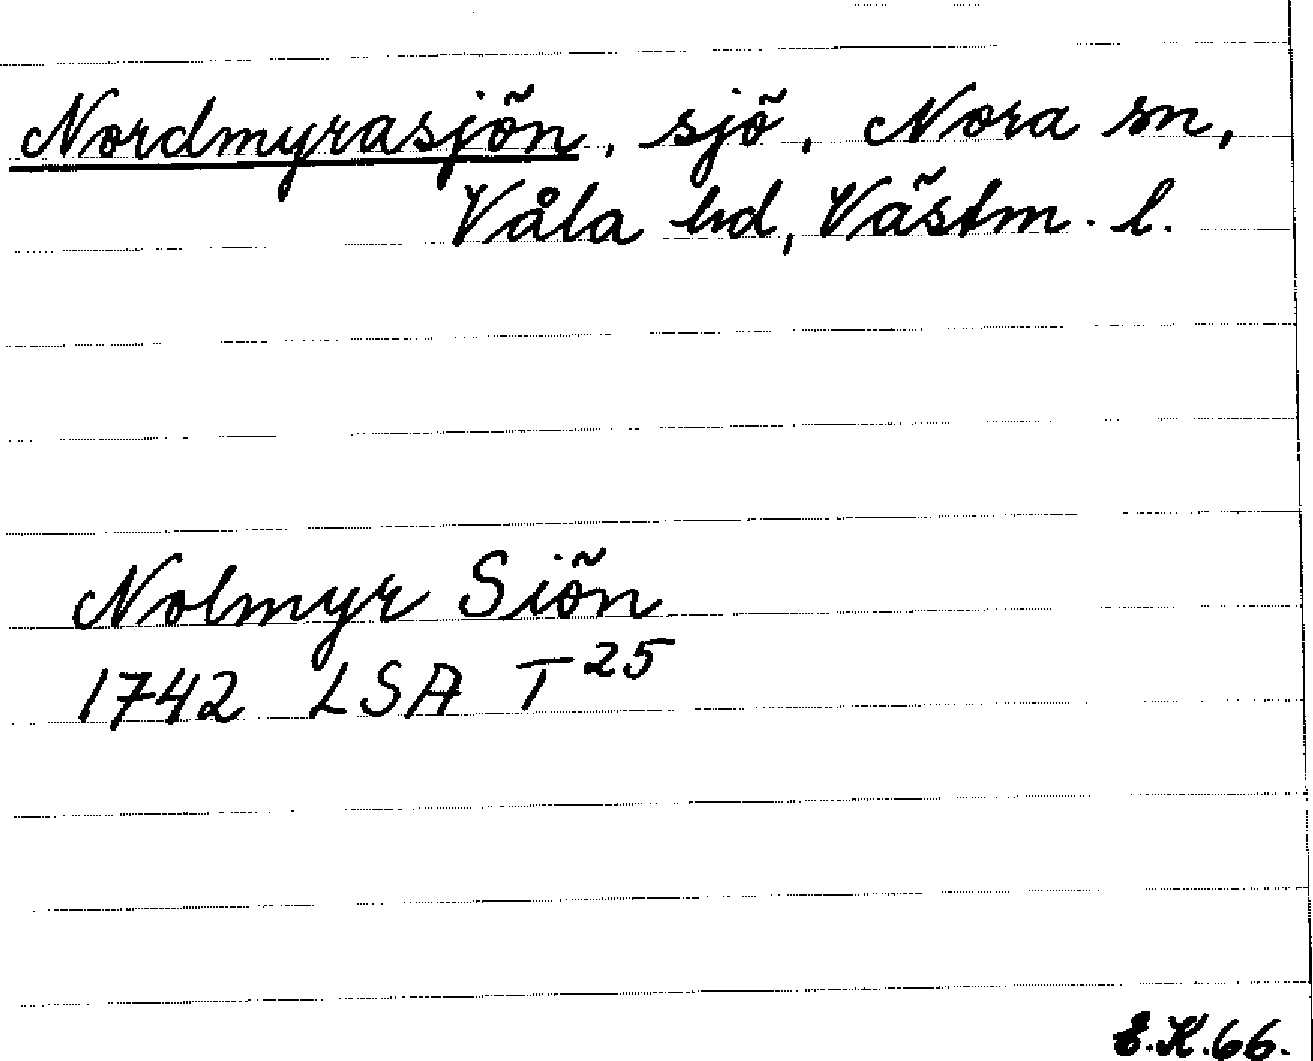 Nordmyrasjön, sjö, Nora sn,
Våla hd, Västm. l.
Nolmyr Siön
1742 LSA T 25
E.K.66.